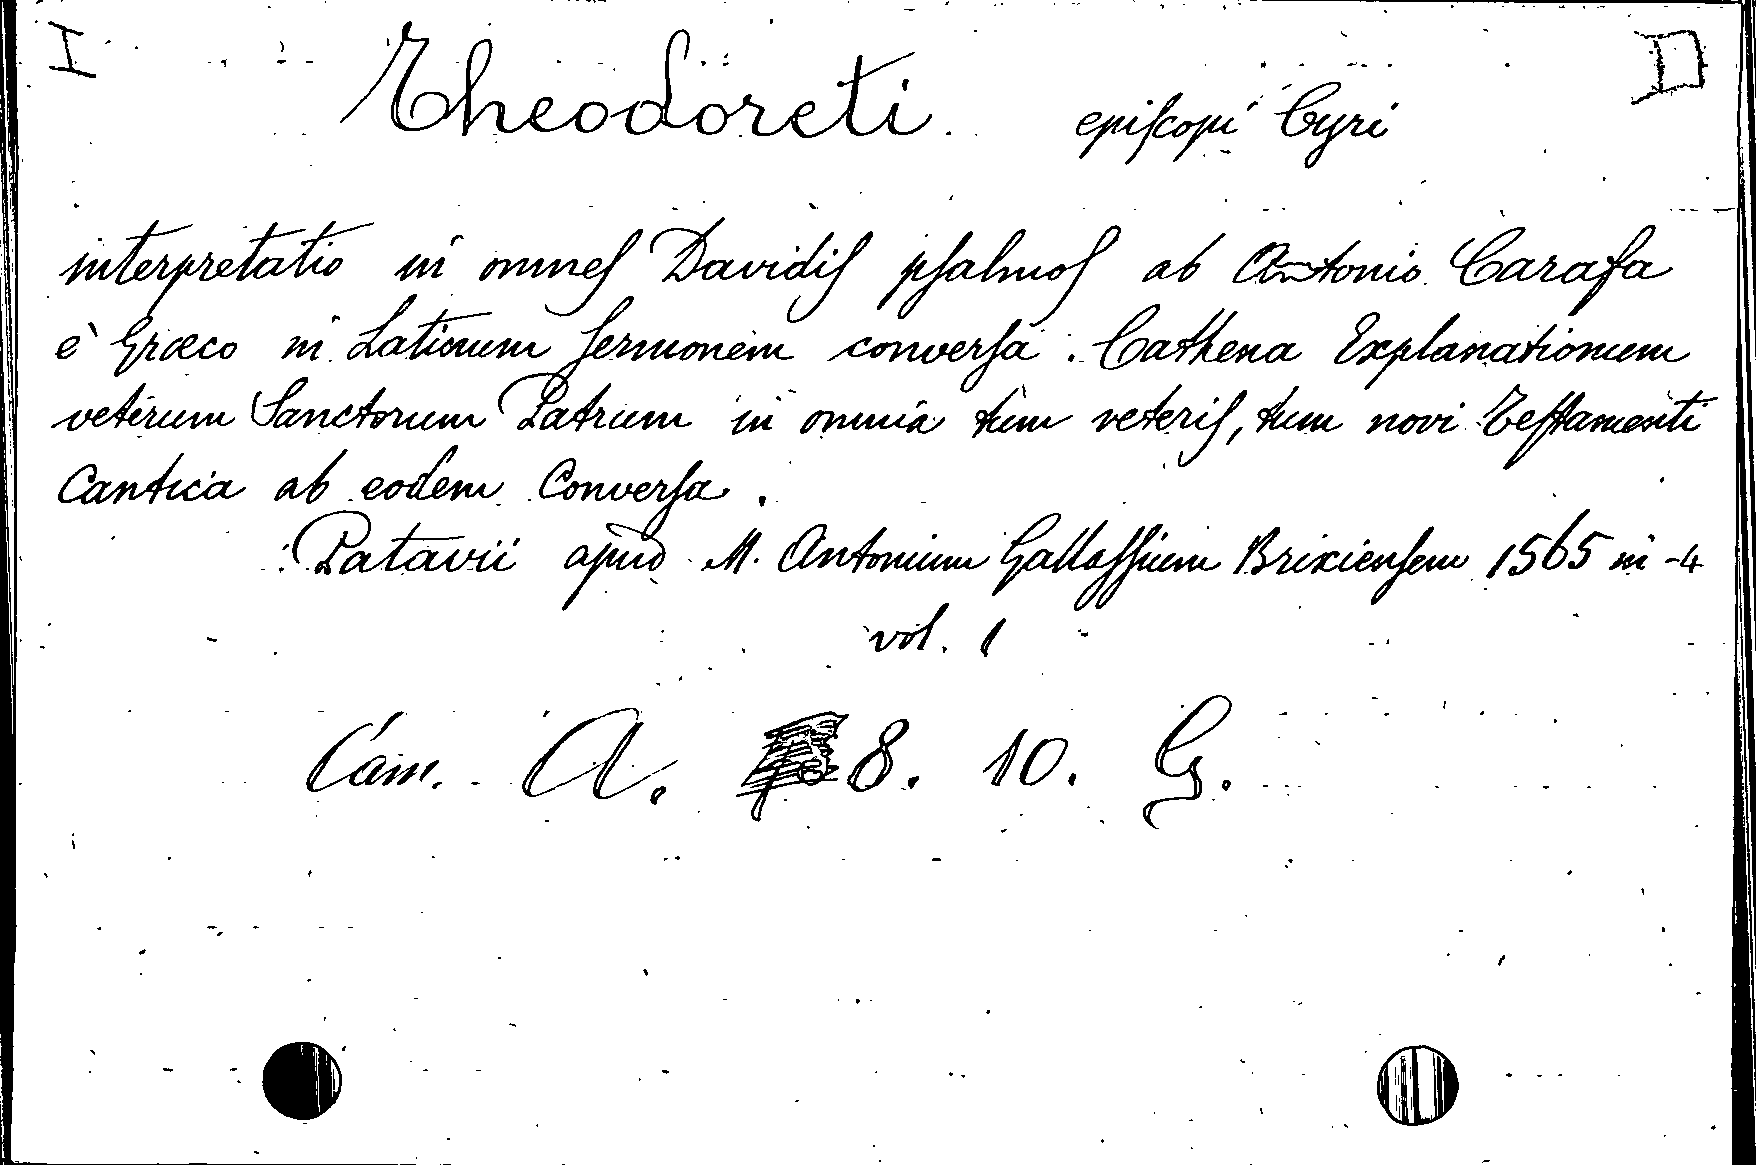 I D
Theodoreti episcopi Cyri
interpretatio in omnes Davidis psalmos ab Antonio Carafa
è Græco in Latinum sermonem conversa. Cathena Explanationum
veterum Sanctorum Patrum in omnia tum veteris, tum novi Testamenti
Cantica ab eodem Conversa.
Patavii apud M. Antonium Gallassium Brixiensem 1565 in-4
vol. 1
Cam. A. 8. 10. G.